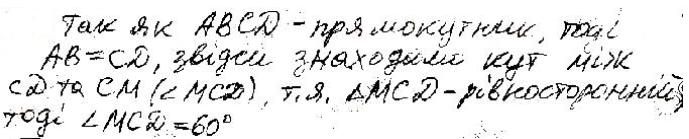 Так як ABCD - прямокутник, тоді
AB=CD, звідси знаходимо кут між
CD та CM (∠MCD), т.я. △MCD - рівносторонній,
тоді ∠MCD = 60°